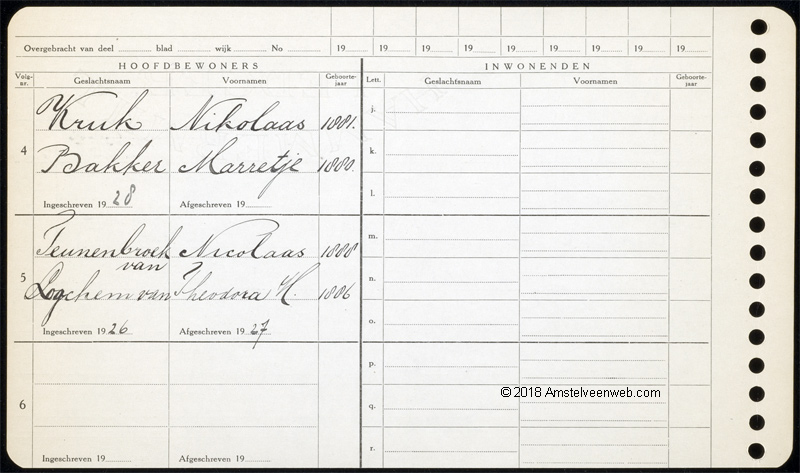 Overgebracht van deel blad wijk No 19 19 19 19 19 19 19 19 19
HOOFDBEWONERS INWONENDEN
Volg-nr. Geslachtsnaam Voornamen Geboorte-jaar Lett. Geslachtsnaam Voornamen Geboorte-jaar
4 Kruk Nikolaas 1881. j.
Bakker Marretje 1880. k.
l.
Ingeschreven 1928 Afgeschreven 19
Teunenbroek van Nicolaas 1888 m.
5 Logchem van Theodora H. 1886 n.
o.
Ingeschreven 1926 Afgeschreven 1927
p.
© 2018 Amstelveenweb.com
6 q.
r.
Ingeschreven 19 Afgeschreven 19